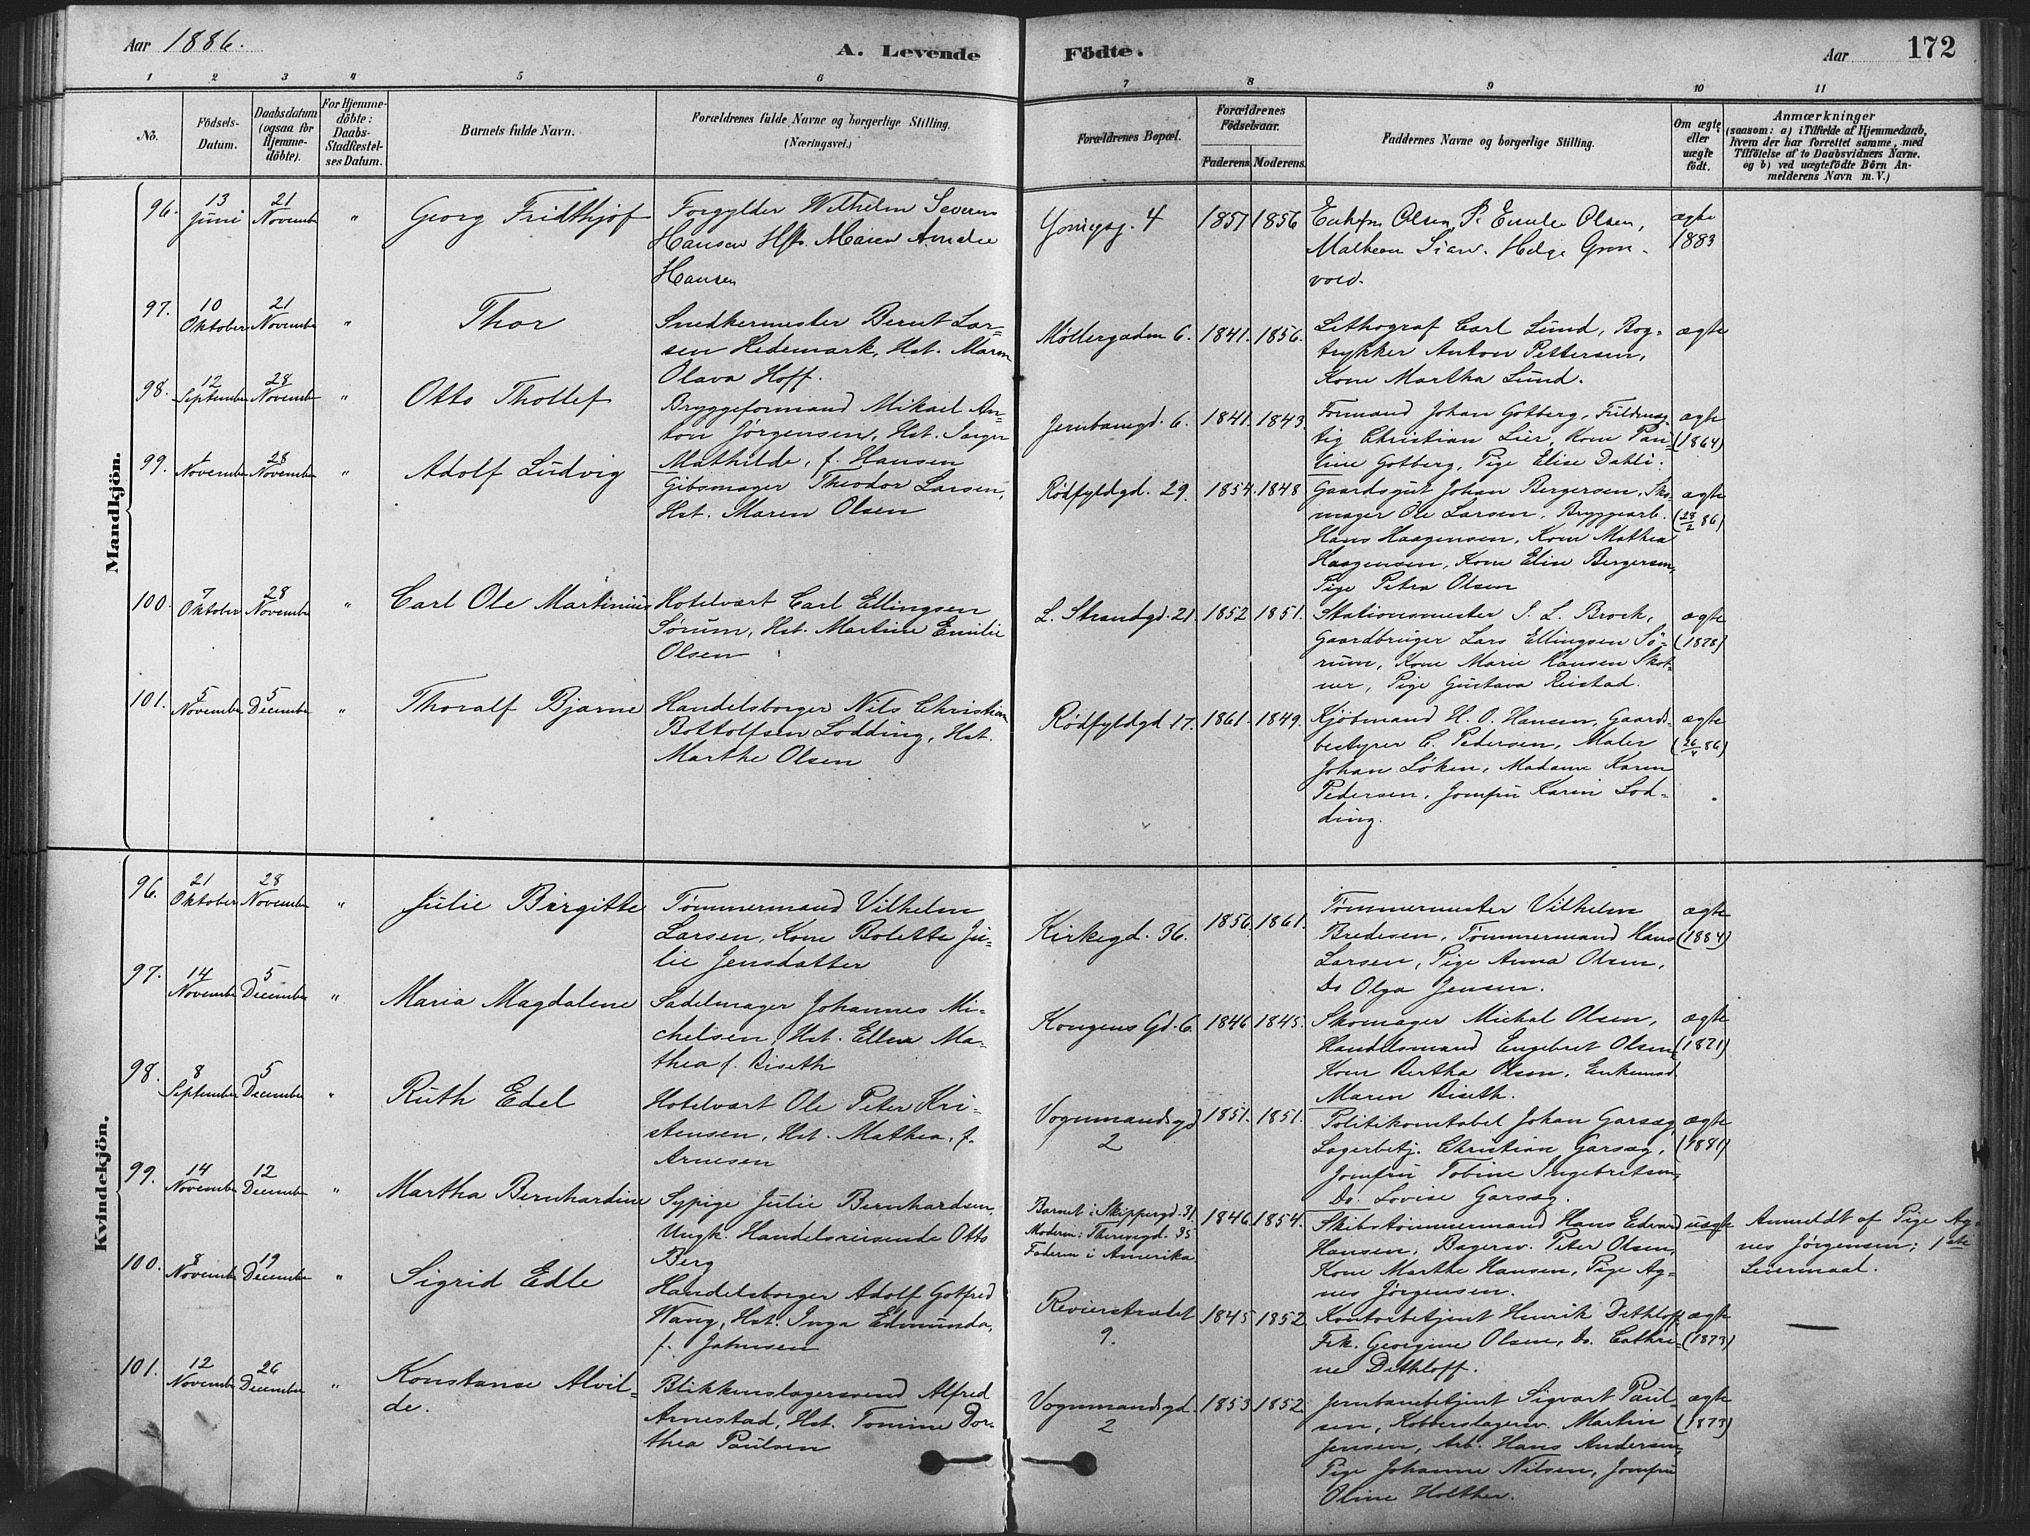 Aar 1886.
A. Levende Födte.
Aar 172
1 2 3 4 5 6 7 8 9 10 11
No.
Födsels-Datum.
Daabsdatum (ogsaa for Hjemme-döbte).
For Hjemme-döbte: Daabs-Stadfæstel-ses Datum.
Barnets fulde Navn.
Forældrenes fulde Navne og borgerlige Stilling.
(Næringsvei.)
Forældrenes Bopæl.
Forældrenes Födselsaar.
Faderens. Moderens.
Faddernes Navne og borgerlige Stilling.
Om ægte eller uægte födt.
Anmærkninger
(saasom: a) i Tilfælde af Hjemmedaab,
hvem der har forrettet samme, med
Tilföielse af to Daabsvidners Navne.
og b) ved uægtefödte Börn An-
melderens Navn m. V.)
Mandkjön.
96. 13 Juni 21 Novembr " Georg Fridthjof
Forgylder Wilhelm Severin
Hansen Hst. Maren Amalie
Hansen
4 1857 1856
Olsen, Emile Olsen,
Helge Grön-
vold.
ægte
1883
97. 10 Oktober 21 Novembr " Thor
Snedkermester Bernt Lar-
sen Hedemark, Hst. Maren
Olava Hoff.
Møllergaden 6. 1841. 1856.
Lithograf Carl Lund, Bog-
trykker Anton Pettersen,
Kone Martha Lund.
ægte
98. 12 September 28 Novembr " Otto Thollef
Bryggeformand Mikael An-
ton Jørgensen, Hst. Inger
Mathilde, f. Hansen
Jernbanegd. 6. 1841. 1843.
Formand Johan Gotberg, Fuldmæg-
tig Christian Lier, Kone Pau-
line Gotberg, Pige Elise Dahli.
ægte
(1864)
99. 1 Novembr 28 Novembr " Adolf Ludvig
Gibsmager Theodor Larsen,
Hst. Maren Olsen
Rødfyldgd. 29. 1854. 1848
Gaardsgut Johan Bergersen, Sko-
mager Ole Larsen, Bryggearb.
Hans Haagensen, Kone Mathea
Haagensen, Kone Elise Bergersen,
Pige Petra Olsen
ægte
(28/2 86)
100. 7 Oktober 28 Novembr " Carl Ole Martinius
Hotelvært Carl Ellingsen
Sørum, Hst. Martine Emilie
Olsen
L. Strandgd. 21. 1852 1851.
Stationsmester J. L. Brock,
Gaardbruger Lars Ellingsen Sö-
rum, Kone Marie Hansen Skot-
ner, Pige Gustava Reistad.
ægte
(1878)
101. 5 Novembr 5 Decembr " Thoralf Bjarne
Handelsborger Nils Christian
Bottolfsen Lodding, Hst.
Marthe Olsen
Rødfyldgd 17. 1861. 1849.
Kjöbmand H. O. Hansen, Gaards-
bestyrer C. Pedersen, Maler
Johan Löken, Madame Karen
Pedersen, Jomfru Karin Lod-
ding.
ægte
(26/4 86)
Kvindekjön.
96. 21 Oktober 28 Novembr " Julie Birgitte
Tømmermand Vilhelm
Larsen, Kone Bolette Ju-
lie Jensdatter
Kirkegd. 36. 1856. 1861.
Tømmermester Vilhelm
Bredesen, Tømmermand Hans
Larsen, Pige Anna Olsen,
Do Olga Jensen.
ægte
(1884)
97. 14 Novembr 5 Decembr " Maria Magdalene
Sadelmager Johannes Mi-
chelsen, Hst. Ellen Ma-
thea f. Biseth
Kongens Gd. 6. 1846 1845.
Skomager Michal Olsen,
Handelsmand Engebret Olsen,
Kone Bertha Olsen, Enkemad.
Maren Biseth.
ægte
(1871)
98. 8 September 5 Decembr " Ruth Edel
Hotelvært Ole Peter Kri-
stensen, Hst. Mathea, f.
Arnesen
Vognmandsgd
2
1851. 1851.
Politikonstabel Johan Garsæg,
Lagerbetj. Christian Garsæg,
Jomfru Tobine Ingebretsen,
Do. Lovise Garsæg.
ægte
(1881)
99. 14 Novembr 12 Decembr " Martha Bernhardine
Sypige Julie Bernhardsen,
Ungk. Handelsreisende Otto
Berg
Barnet i Skippergd. 31.
Moderen i Theresegd. 35
Faderen i Amerika
1846. 1854.
Skibstömmermand Hans Edvard
Hansen, Bagersv. Peter Olsen,
Kone Marthe Hansen, Pige Ag-
nes Jörgensen.
uægte
Anmeldt af Pige Ag-
nes Jørgensen; 1ste
Leiermaal.
100. 8 Novembr 19 Decembr " Sigrid Edle
Handelsborger Adolf Gotfred
Wang, Hst. Inga Edmunda,
f. Johnsen
Revierstrædet
9.
1845 1852
Kontorbetjent Henrik Dethloff,
Frk. Georgine Olsen, Do. Cathri-
ne Dethloff.
ægte
(1873)
101. 12 Novembr 26 Decembr " Konstanse Alvil-
de.
Blikkenslagersvend Alfred
Arnestad, Hst. Tomine Dor-
thea Paulsen
Vognmandsgd.
2
1853 1852
Jernbanebetjent Sigvart Paul-
sen, Kobberslagersv. Martin
Jensen, Arb. Hans Andersen,
Pige Johanne Nilsen, Jomfru
Oline Holther.
ægte
(1873)